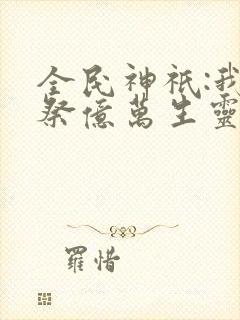 全民神祇:我
祭億萬生靈
羅惜